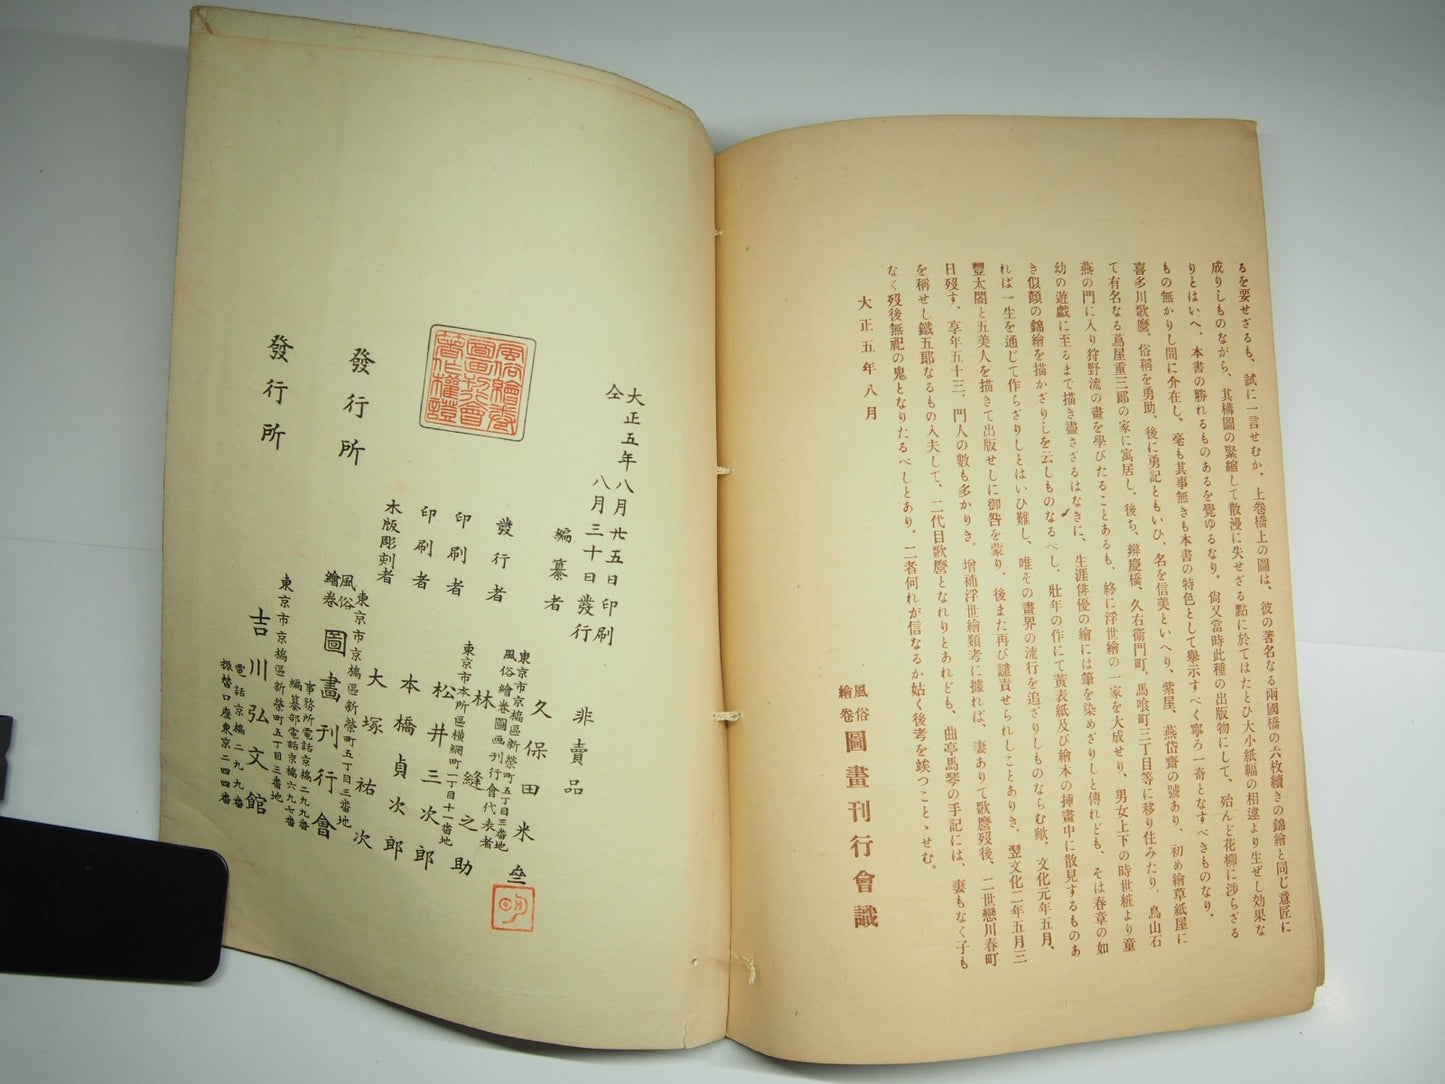 るを要せざるも、試に一言せむか。上卷橋上の圖は、彼の著名なる兩國橋の六枚續きの錦繪と同じ意匠に
成りしものながら、其構圖の緊縮して散漫に失せざる點に於てはたとひ大小紙幅の相違より生ぜし効果な
りとはいへ、本書の勝れるものあるを覺ゆるなり。尙又當時此種の出版物にして、殆んど花柳に涉らざる
もの無かりし間に介在し、毫も其事無きも本書の特色として擧示すべく寧ろ一奇となすべきものなり。
喜多川歌麿、俗稱を勇助、後に勇記ともいひ、名を信美といへり、紫屋、燕岱齋の號あり、初め繪草紙屋に
て有名なる蔦屋重三郞の家に寓居し、後ち、辨慶橋、久右衞門町、馬喰町三丁目等に移り住みたり、鳥山石
燕の門に入り狩野流の畫を學びたることあるも、終に浮世繪の一家を大成せり、男女上下の時世粧より童
幼の遊戯に至るまで描き盡さざるはなきに、生涯俳優の繪には筆を染めざりしと傳れども、そは春章の如
き似顏の錦繪を描かざりしを云しものなるべし、壯年の作にて黃表紙及び繪本の挿畫中に散見するものあ
れば一生を通じて作らざりしとはいひ難し、唯その畫界の流行を追ざりしものならむ歟、文化元年五月、
豐太閤と五美人を描きて出版せしに御咎を蒙り、後また再び譴責せられしことありき、翌文化二年五月三
日歿す、享年五十三、門人の數も多かりき。增補浮世繪類考に據れば、妻ありて歌麿歿後、二世戀川春町
を稱せし鐵五郞なるもの入夫して、二代目歌麿となれりとあれども、曲亭馬琴の手記には、妻もなく子も
なく歿後無祀の鬼となりたるべしとあり。二者何れが信なるか姑く後考を竢つことゝせむ。
大正五年八月
風俗繪卷圖畫刊行會識
大正五年八月廿五日印刷
仝 八月三十日發行
非賣品
編纂者 久保田米
東京市京橋區新榮町五丁目三番地
風俗繪卷圖画刊行會代表者
發行者 林縫之助
東京市本所區橫網町一丁目十一番地
印刷者 松井三次郎
印刷者 本橋貞次郎
木版彫刻者 大塚祐次
東京市京橋區新榮町五丁目三番地
發行所 風俗繪卷圖畫刊行會
事務所電話京橋二九九番
編纂部電話京橋六九七番
東京市京橋區新榮町五丁目三番地
發行所 吉川弘文館
電話京橋二九九番
振替口座東京二四四番
風俗繪卷圖畫刊行會著作權證